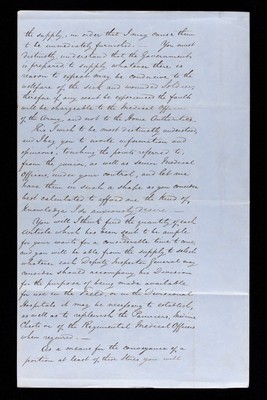 the supply, in order that I may cause them
to be immediately furnished. — You must
distinctly understand that the Government
is prepared to supply whatever there is
reason to expect may be conducive to the
welfare of the sick and wounded Soldiers,
therefore if any want be experienced the fault
will be chargeable to the Medical Officers
of the Army, and not to the Home Authorities.
This I wish to be most distinctly understood,
and I beg you to invite information and
opinions touching the points referred to,
from the junior as well as senior Medical
Officers under your control, and let me
have them in such a shape as you consider
best calculated to afford me the kind of
knowledge I so anxiously desire. —
You will I think find the quantity of each
Article which has been sent to be ample
for your wants for a considerable time to come,
and you will be able from the supply to select
whatever each Deputy Inspector General may
consider should accompany his Division
for the purpose of being made available
for use in the Field, or in the Divisional
Hospitals it may be necessary to establish,
as well as to replenish the Panniers, Medicine
Chests &c of the Regimental Medical Officers
when required. —
As a means for the conveyance of a
portion at least of these Stores you will